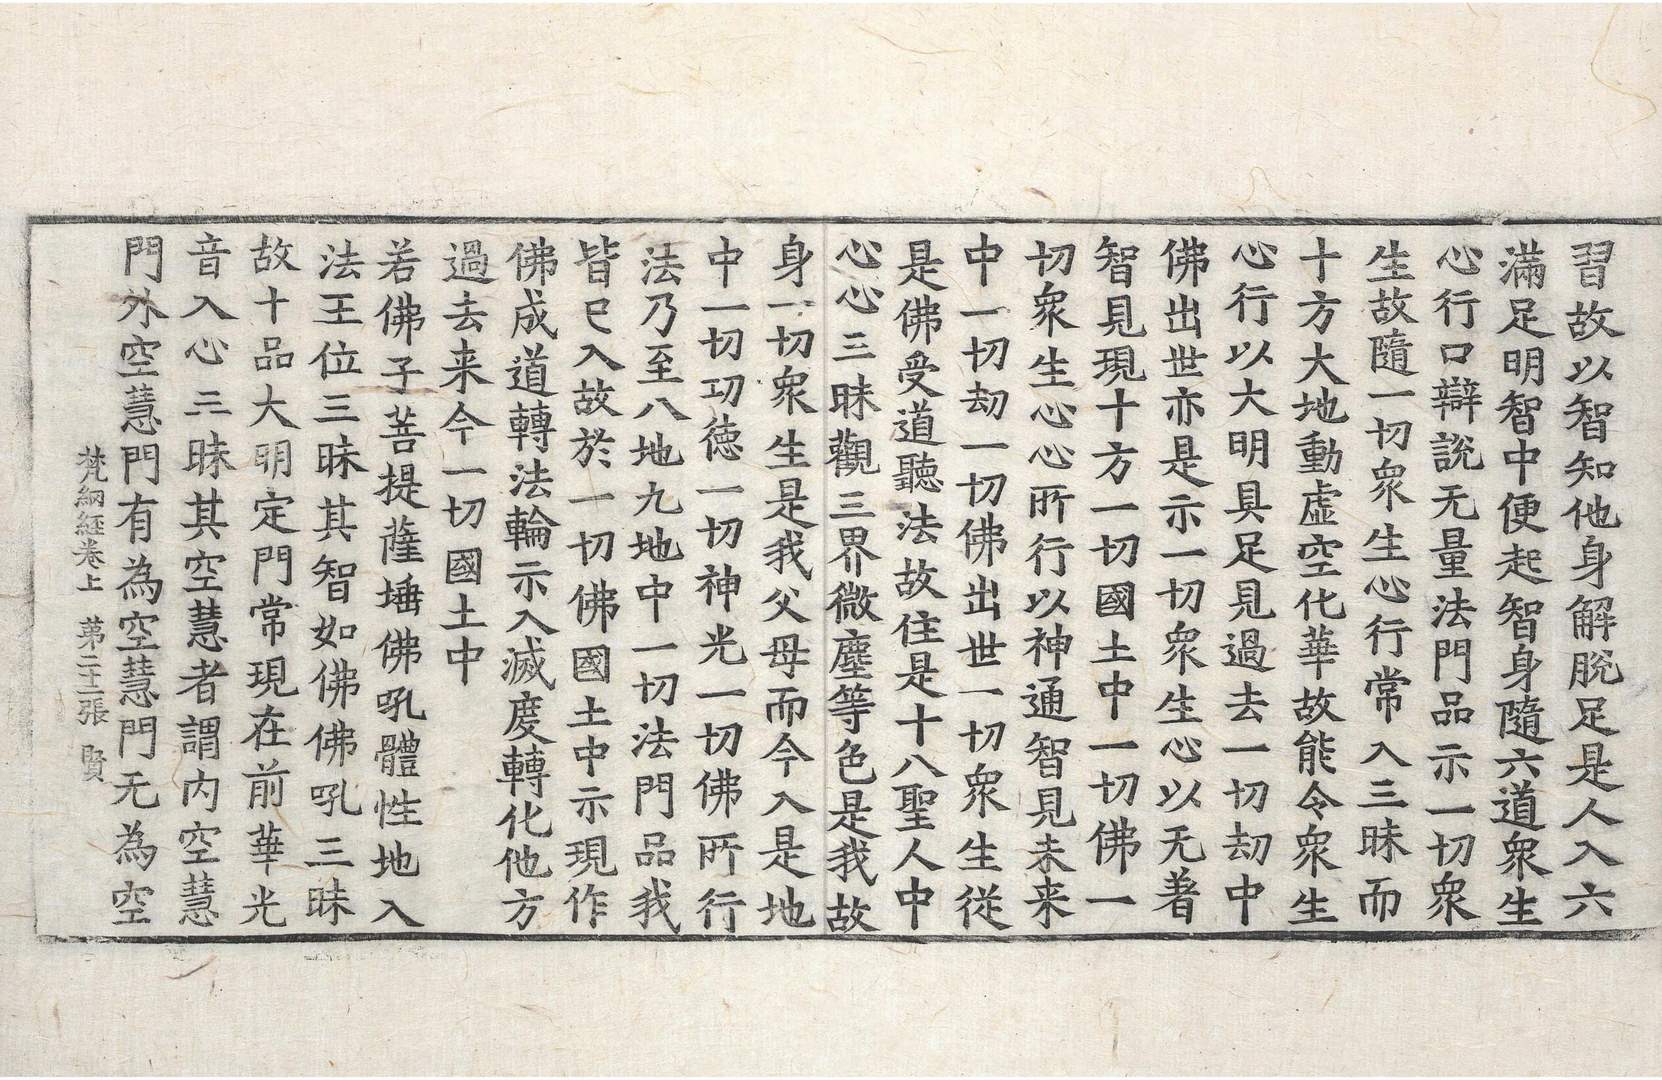 習故以智知他身解脫足是人入六
滿足明智中便起智身隨六道衆生
心行口辯說无量法門品示一切衆
生故隨一切衆生心行常入三昧而
十方大地動虛空化華故能令衆生
心行以大明具足見過去一切劫中
佛出世亦是示一切衆生心以无著
智見現十方一切國土中一切佛一
切衆生心心所行以神通智見未来
中一切劫一切佛出世一切衆生從
是佛受道聽法故住是十八聖人中
心心三昧觀三界微塵等色是我故
身一切衆生是我父母而今入是地
中一切功徳一切神光一切佛所行
法乃至八地九地中一切法門品我
皆已入故於一切佛國土中示現作
佛成道轉法輪示入滅度轉化他方
過去来今一切國土中
若佛子菩提薩埵佛吼體性地入
法王位三昧其智如佛佛吼三昧
故十品大明定門常現在前華光
音入心三昧其空慧者謂内空慧
門外空慧門有為空慧門无為空
梵網經卷上　苐二十二張　賢